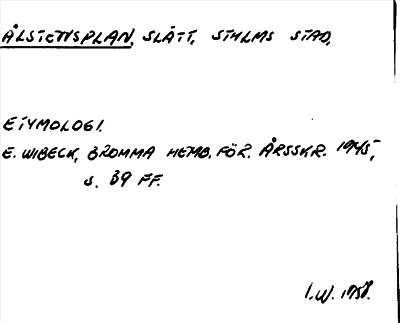 ÅLSTENSPLAN, SLÄTT, STHLMS STAD,
ETYMOLOGI.
E. WIBECK, BROMMA HEMB. FÖR. ÅRSSKR. 1945,
s. 39 FF.
I.W. 1958.